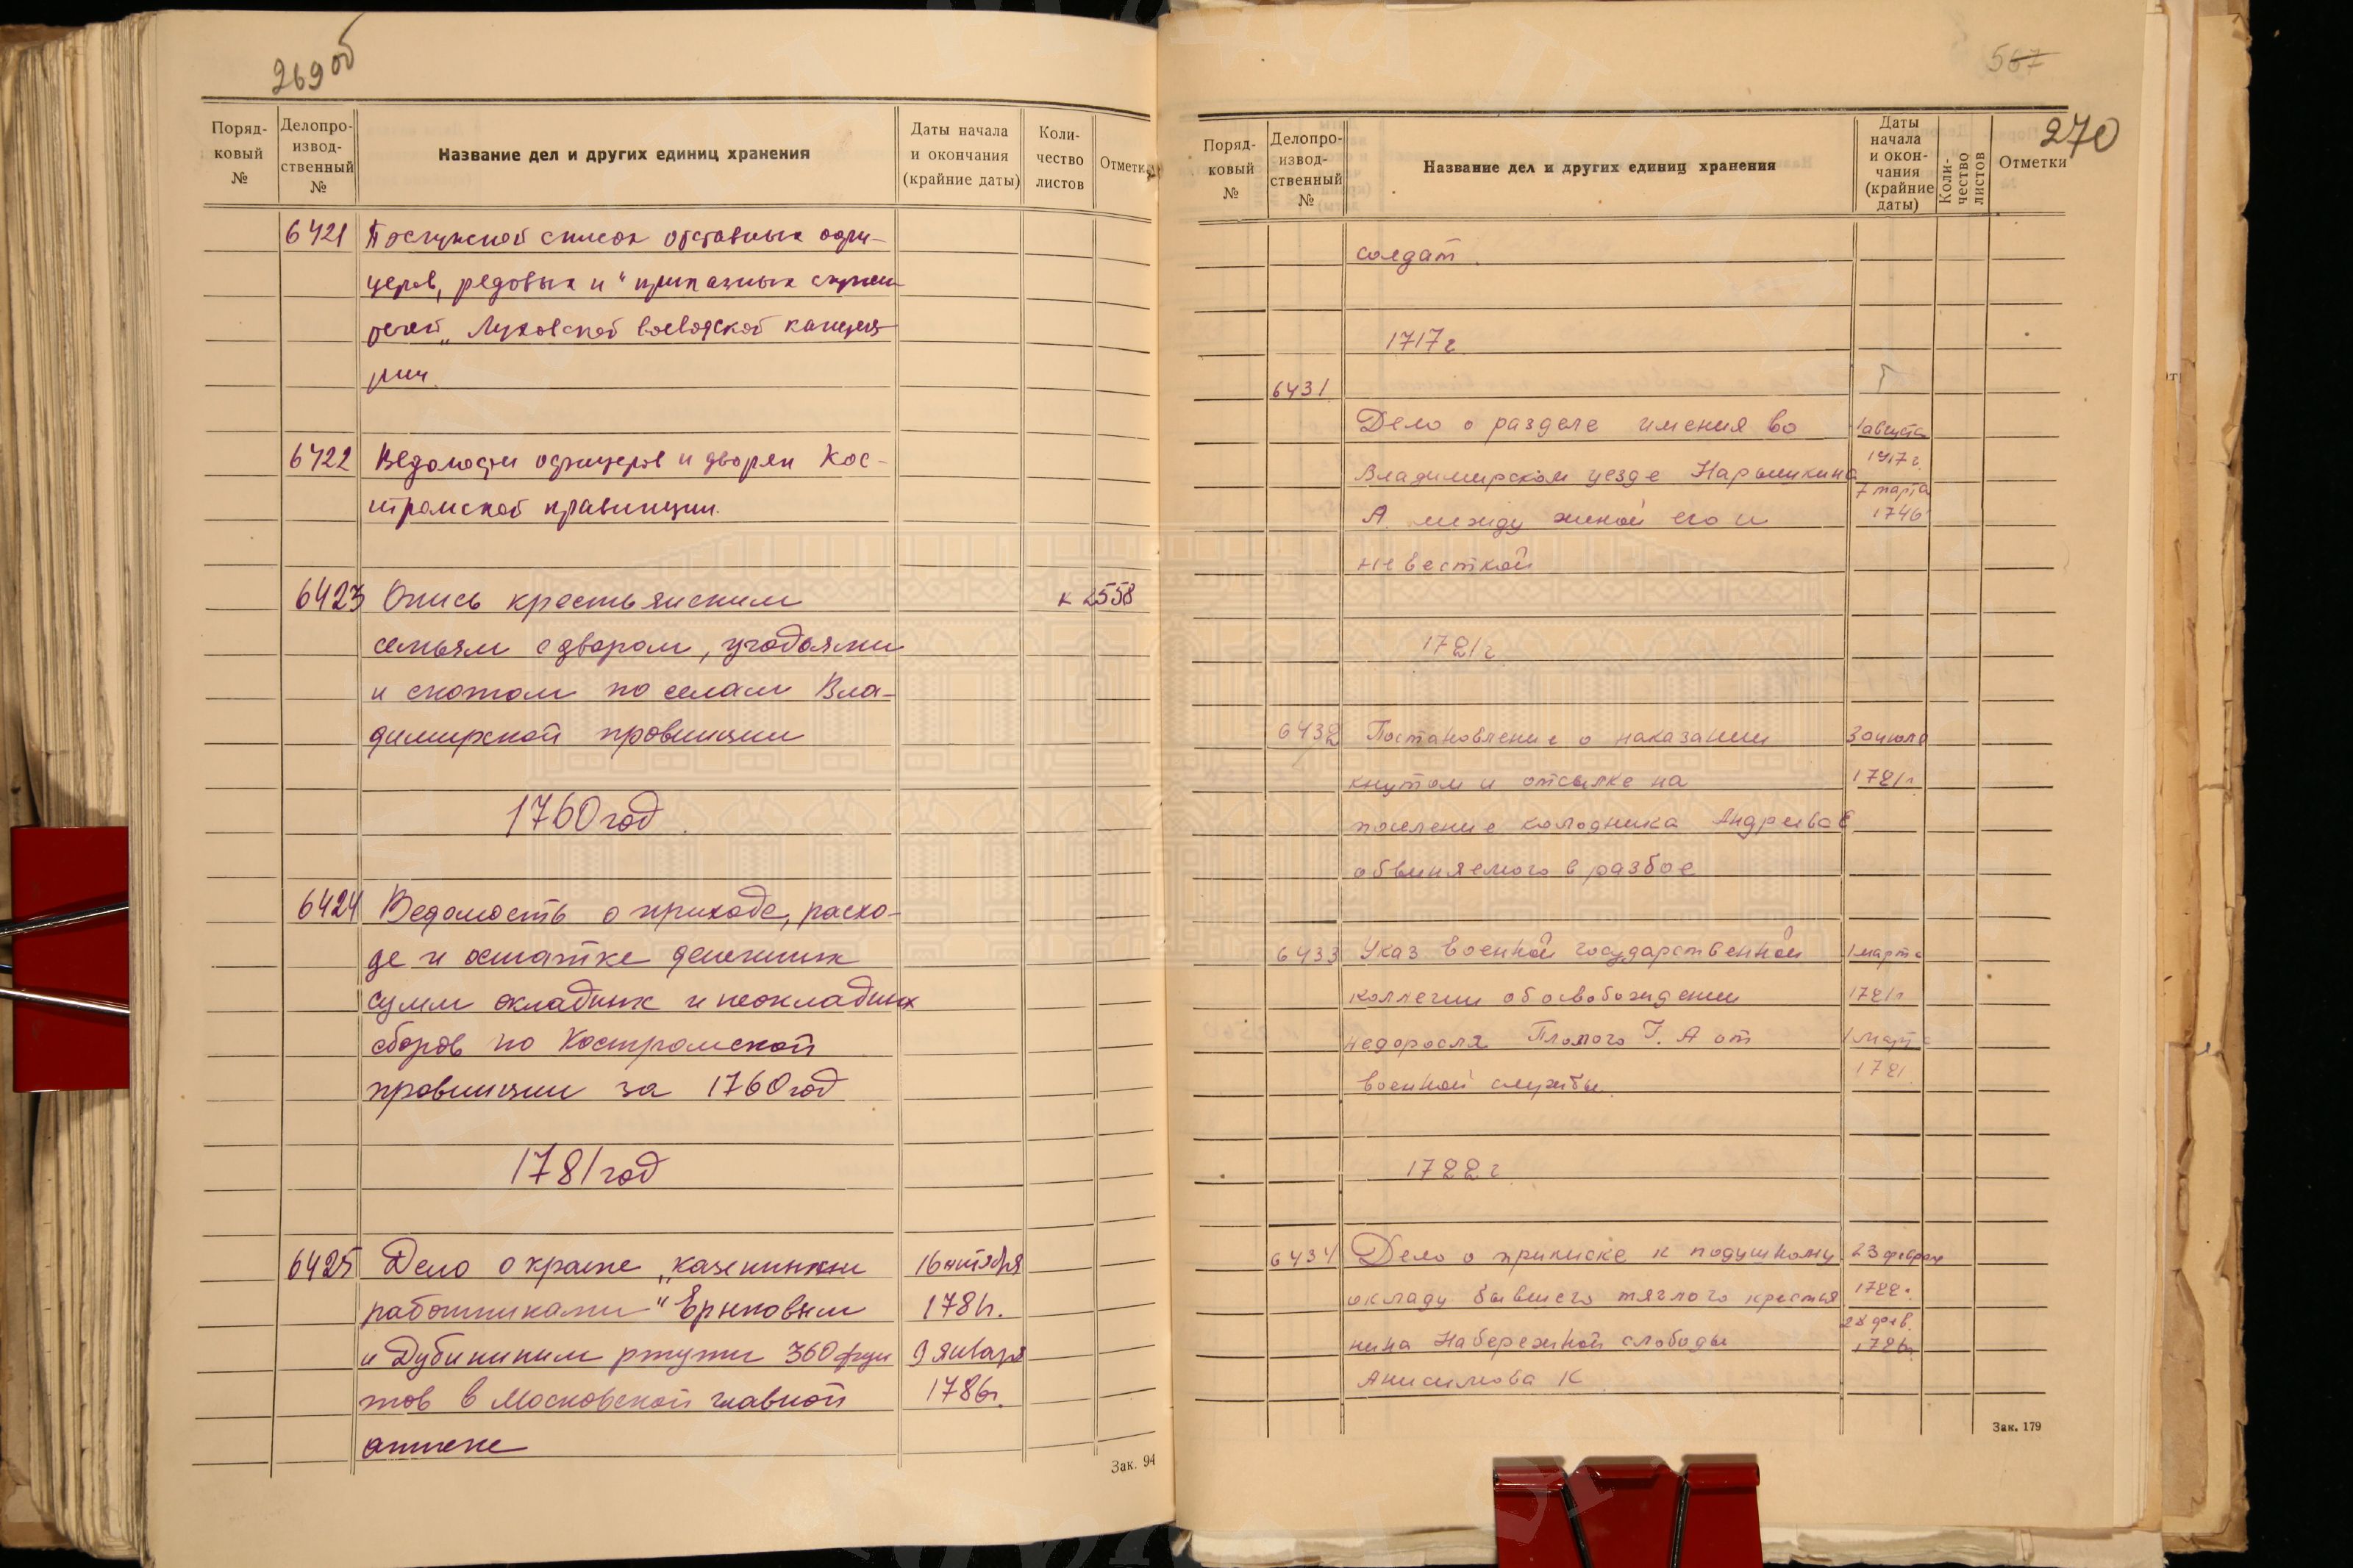 269 об
Поряд-
ковый
№
Делопро-
извод-
ственный
№
Название дел и других единиц хранения
Даты начала
и окончания
(крайние даты)
Коли-
чество
листов
Отметк
6421 Послужной список отставных офи-
церов, редовых и "приказных служи
телей" Луховской воеводской канцеля
рии.
6422 Ведомости офицеров и дворян Кос-
тромской правинции.
6423 Опись крестьянским к 2558
семьям с двором, угодьями
и скотом по селам Вла-
димирской провинции
1760 год.
6424 Ведомость о приходе, расхо-
де и остатке денежных
сумм окладных и неокладных
сборов по Костромской
провинции за 1760 год
1781 год
6425 Дело о краже „казенными 16 октября
работниками" Ерыковым 1781г.
и Дубининым ртути 360 фун 9 января
тов в Московской главной 1786г.
аптеке
Зак. 94
567
270
Поряд-
ковый
№
Делопро-
извод-
ственный
№
Название дел и других единиц хранения
Даты
начала
и окон-
чания
(крайние
даты)
Коли-
чество
листов
Отметки
солдат.
1717 г
6431
Дело о разделе имения во 1 августа
Владимирском уезде Нарышкина 1717 г.
7 марта
А. между женой его и 1746
невесткой
1721 г
6432 Постановление о наказании
кнутом и отсылке на 1721 г.
поселение колодника Андреева Е
обвиняемого в разбое
6433 Указ Военной государственной 1 марта
коллегии об освобождении 1721 г
недоросля Г. А от 1 марта
военной службы. 1721
1722 г
6434 Дело о приписке к подушному 23 феврал
окладу бывшего тяглого крестья 1722 г.
28 фев.
нина Набережной слободы 1726г.
Анисимова К
Зак. 179